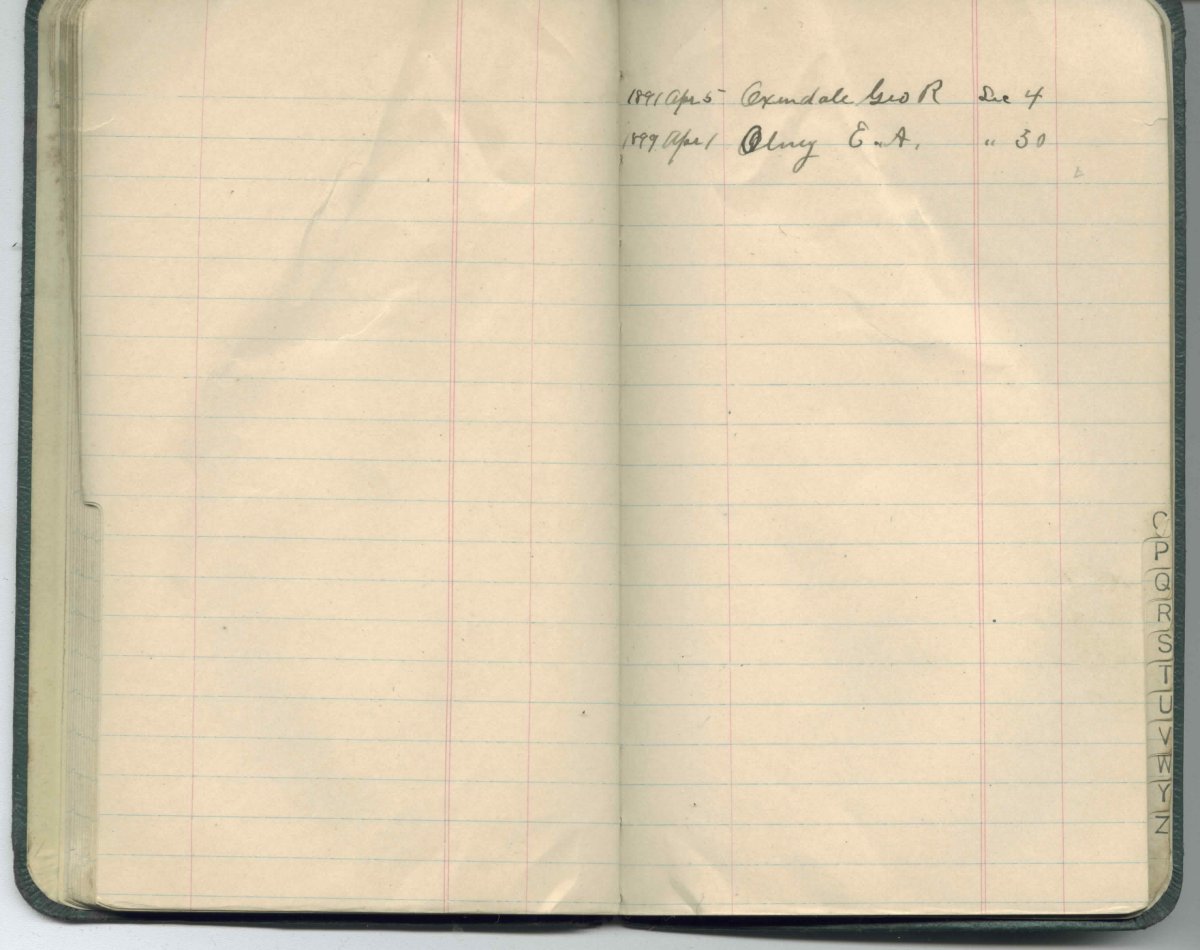 1891 Apr 5 Oxendale Geo R Sec 4
1899 Apr 1 Olney E. A. " 30
P
Q
R
S
T
U
V
W
Y
Z